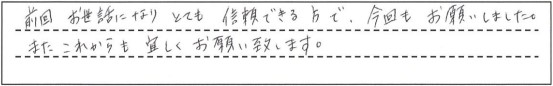 前回 お世話になり とても 信頼できる方で、今回も お願いしました。
またこれからも 宜しくお願い致します。